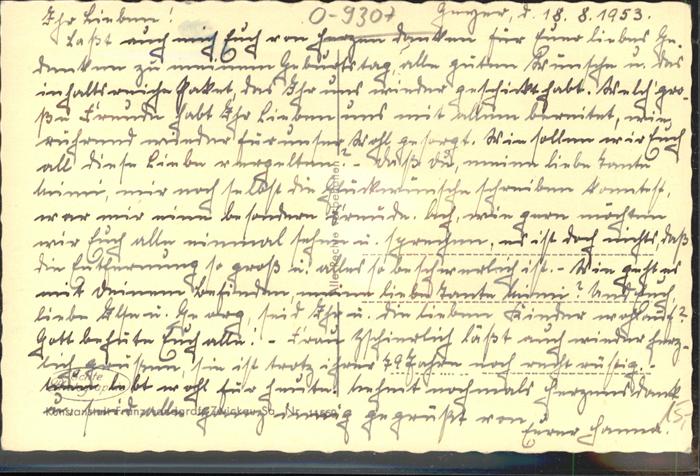 O-9307
Geyer, d. 18.8.1953.
Ihr Lieben!
Laßt auch mich Euch von Herzen danken für Euer liebes Ge-
denken zu meinem Geburtstag, alle guten Wünsche u. das
inhaltsreiche Paket, das Ihr uns wieder geschickt habt. Welch gro-
ße Freude habt Ihr Lieben uns mit allem bereitet, wie
rührend wieder für unser Wohl gesorgt. Wie sollen wir Euch
all diese Liebe vergelten? - Daß Du, meine liebe Tante
Mimi, mir noch selbst die Glückwünsche schreiben konntest,
war mir eine besondere Freude. Ach, wie gern möchten
wir Euch alle einmal sehen u. sprechen, es ist doch nichts, daß
die Entfernung so groß u. alles so beschwerlich ist. - Wie geht es
mit Deinem Befinden, meine liebe Tante Mimi? Und Euch,
liebe Else u. Georg, seid Ihr u. die lieben Kinder wohlauf?
Gott behüte Euch alle! - Frau Zschierlich läßt auch wieder herz-
lich grüßen, sie ist trotz ihrer 79 Jahre noch recht rüstig. -
lebt wohl für heute. Nehmt nochmals Herzensdank
u. seid alle ganz innig gegrüßt von
Eurer Hanna.
Echte
Konstanstalt Franz Landgraf, Zwickau Sa.